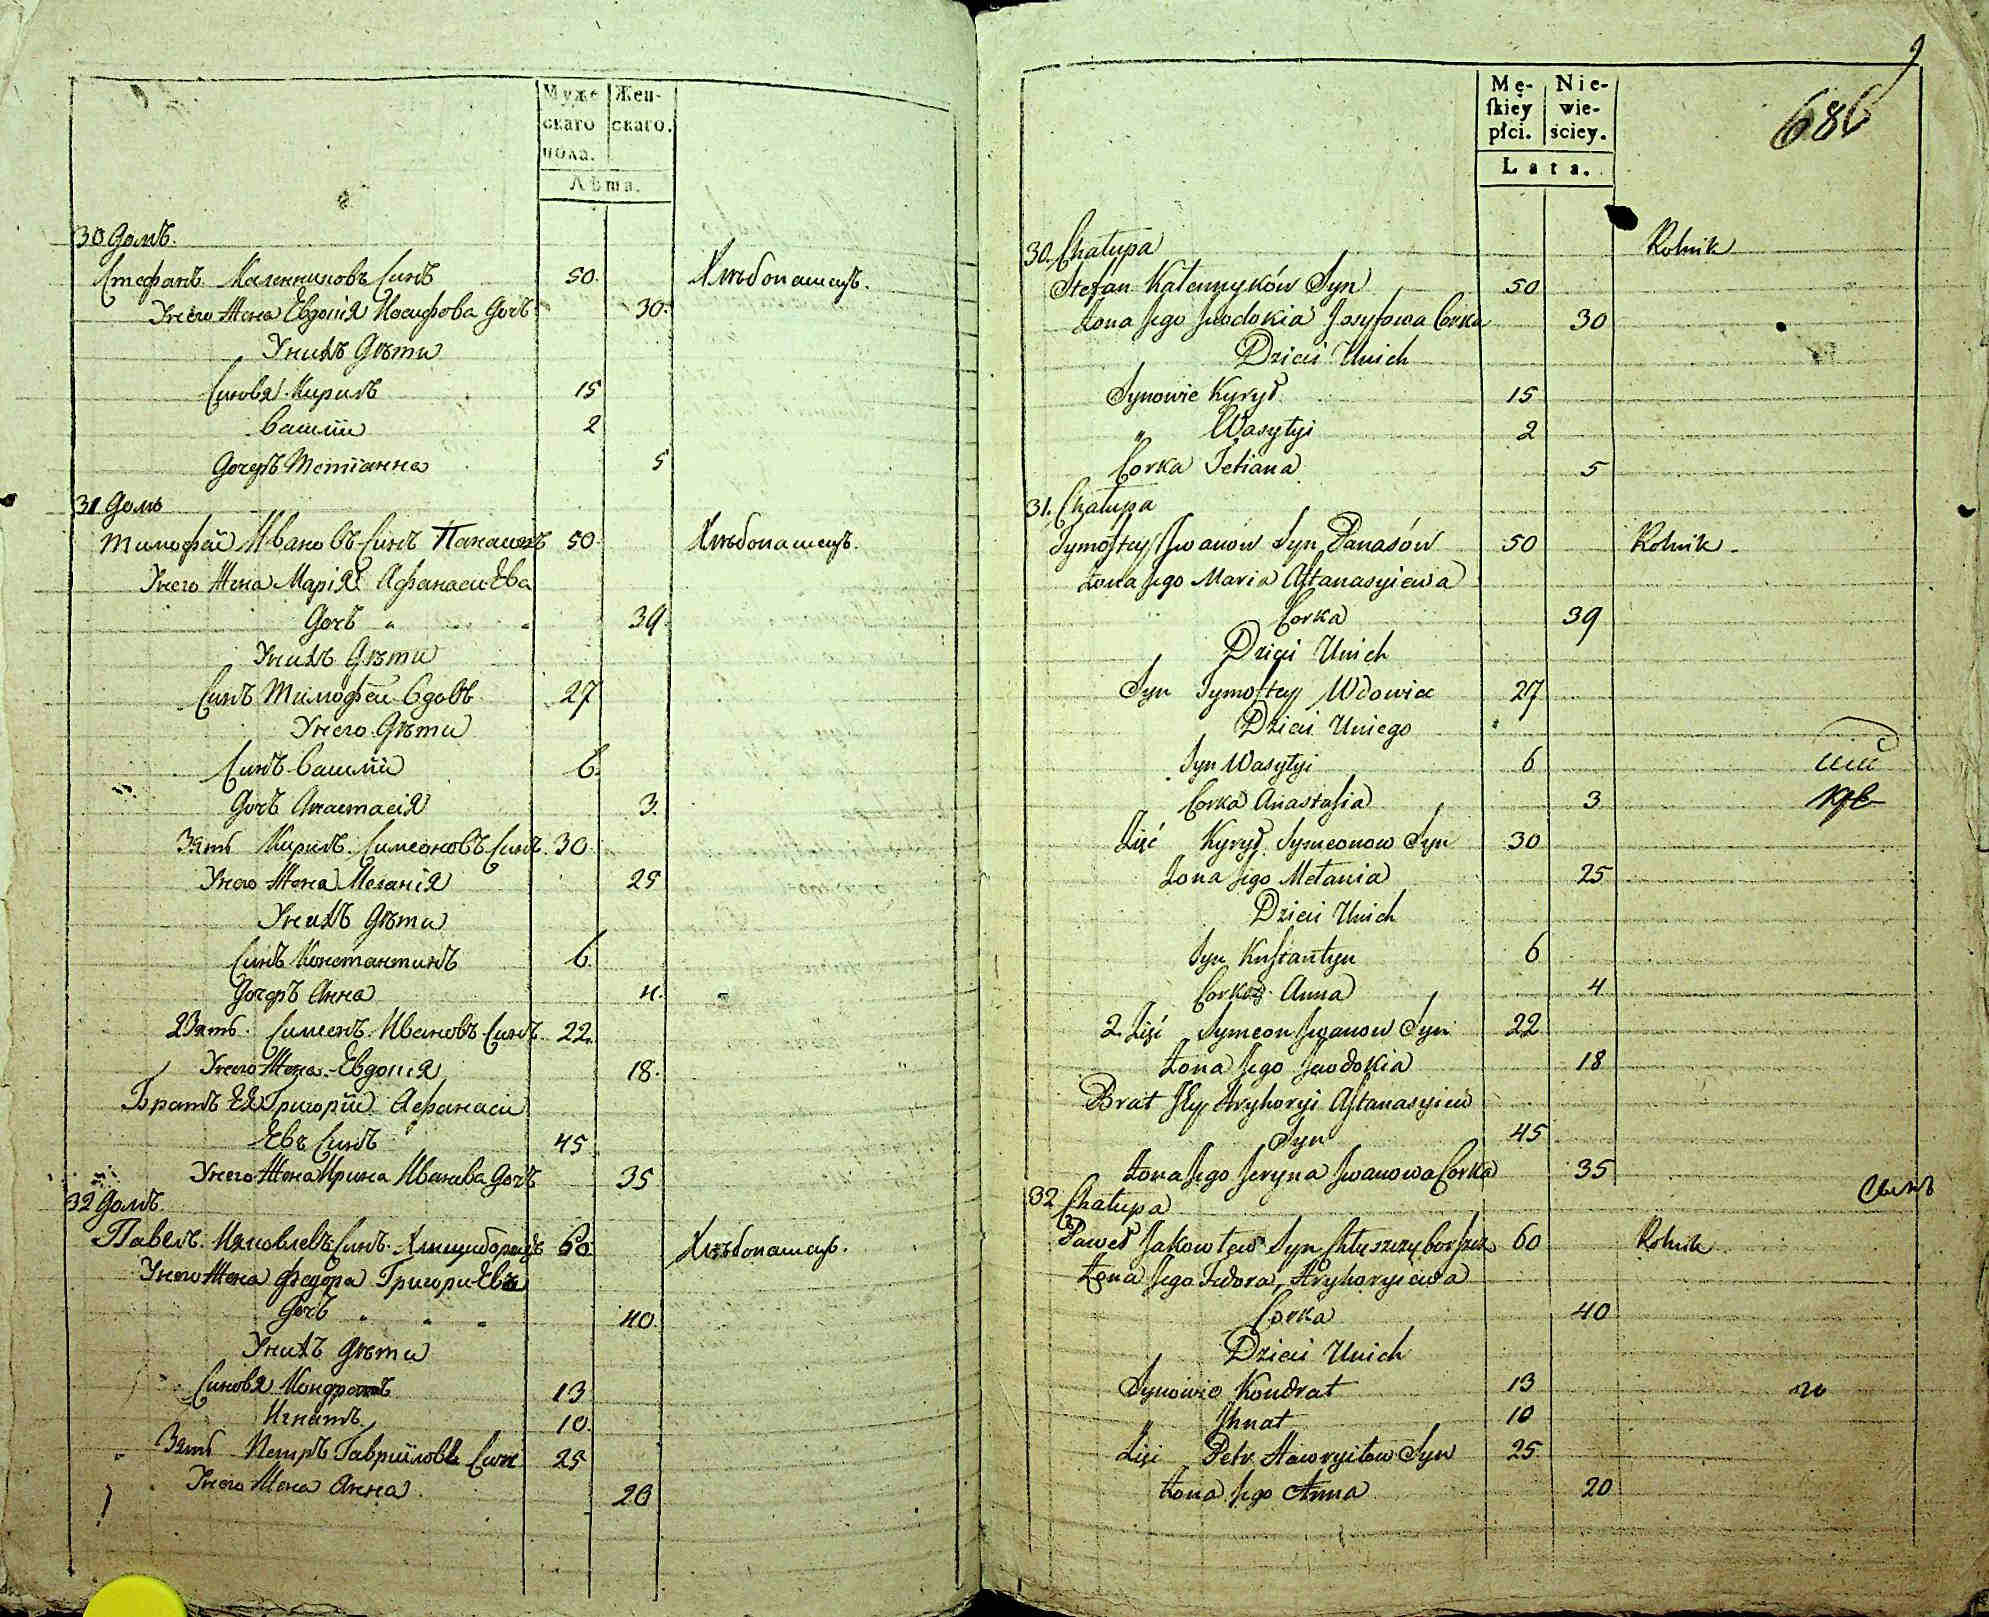 Муже
скаго
пола.
Жен-
скаго.
Лѣта.
30 Домъ.
Стефанъ Калениковъ Синъ 50. Хлѣбопашецъ.
Унего Жена Евдокія Иосифова Дочъ 30.
Унихъ Дѣти
Синовя Кирилъ 15
Василій 2
Дочерь Тетіанна 5
31 Домъ
Тимофей Ивановъ Синъ Панасовъ 50. Хлѣбопашецъ.
Унего Жена Марія Афанасиева
Дочъ " " 39.
Унихъ Дѣти
Синъ Тимофей Вдовъ. 27
Унего Дѣти
Синъ Василій 6.
Дочъ Анастасія 3.
Зять Кирилъ Симеоновъ Синъ. 30.
Унего Жена Меланія 25
Унихъ Дѣти
Синъ Константинъ 6.
Дочерь Анна 4.
2 Зять. Симеонъ Ивановъ Синъ 22.
Унего Жена Евдокія 18.
Братъ Ея Григорій Афанаси
Евъ Синъ 45
Унего Жена Ирина Иванова Дочъ 35
32 Домъ.
ПавелъИяковлевъ Синъ 60. Хлѣбопашецъ.
Унего Жена Федора Григориева
Дочъ " " " 40.
Унихъ Дѣти
Синовя Кондратъ 13
Игнатъ 10.
Зять Петръ Гавриіловъ Синъ 25
Унего Жена Анна. 20
9
686
Mę-
skiey
płci.
Nie-
wie-
ściey.
Lata.
30. Chałupa Rolnik
Stefan Kalennyków Syn 50
Żona Jego Jwdokia Josyfowa Corka 30
Dzieci Unich
Synowie Kyrył 15
" Wasylyi 2
Corka Tetiana 5
31. Chałupa
Tymoftey Jwanow Syn Panasów 50 Rolnik
Żona Jego Maria Aftanasyiewa
Corka 39
Dzieci Unich
Syn Tymoftey Wdowiec 27
Dzieci Uniego
Syn Wasylyi 6
Corka Anastasia 3
Zięć Kyrył Symeonow Syn 30
Żona Jego Melania 25
Dzieci Unich
Syn Kostantyn 6
Corka Anna 4
2 Zięć Symeon Jwanow Syn 22
Żona Jego Jwdokia 18
Brat Jey Hryhoryi Aftanasyiew
Syn 45
Żona Jego Jeryna Jwanowa Corka 35
32 Chałupa
Paweł Jakowlew Syn 60 Rolnik
Żona Jego Fedora Hryhoryiewa
Corka 40
Dzieci Unich
Synowie Kondrat 13
Jhnat 10
Zięć Petr Hawryiłow Syn 25
Żona Jego Anna 20